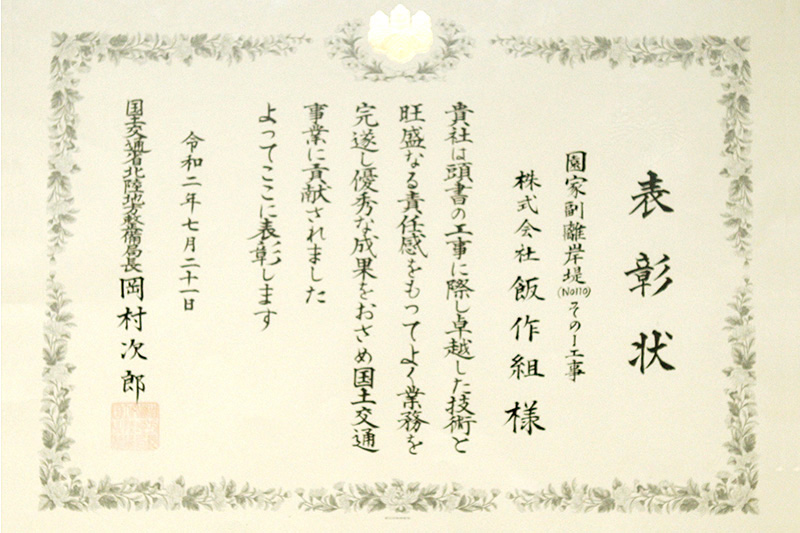 表彰状
園家副離岸堤(No110)その1工事
株式会社飯作組様
貴社は頭書の工事に際し卓越した技術と
旺盛なる責任感をもってよく業務を
完遂し優秀な成果をおさめ国土交通
事業に貢献されました
よってここに表彰します
令和二年七月二十一日
国土交通省北陸地方整備局長 岡村次郎